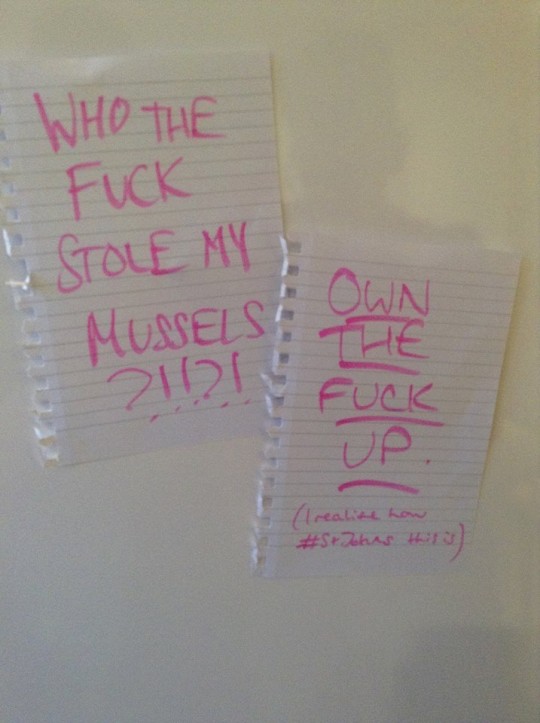 WHO THE
FUCK
STOLE MY
MUSSELS
?!!?!
OWN
THE
FUCK
UP.
(I realise how
#StJohns this is)